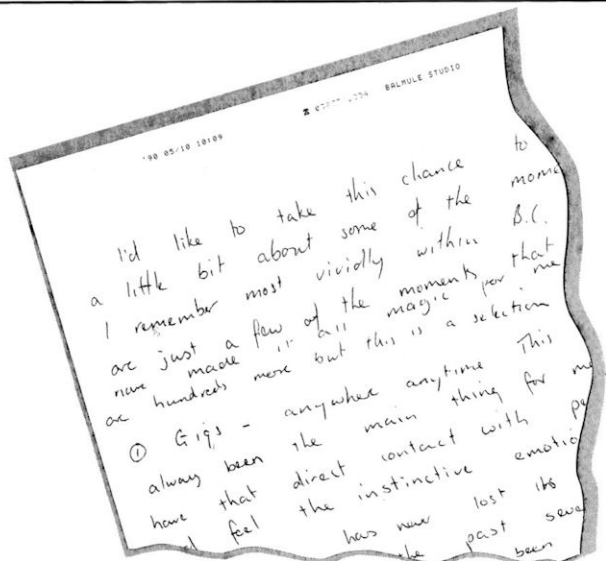 '90 05/10 10:09
BALMULE STUDIO
I'd like to take this chance to
a little bit about some of the mome
I remember most vividly within B.C.
are just a few of the moments that
have made it all magic for me
are hundreds more but this is a selection
① Gigs - anywhere anytime This
always been the main thing for me
have that direct contact with pe
feel the instinctive emotio
has never lost its
the past seve
been